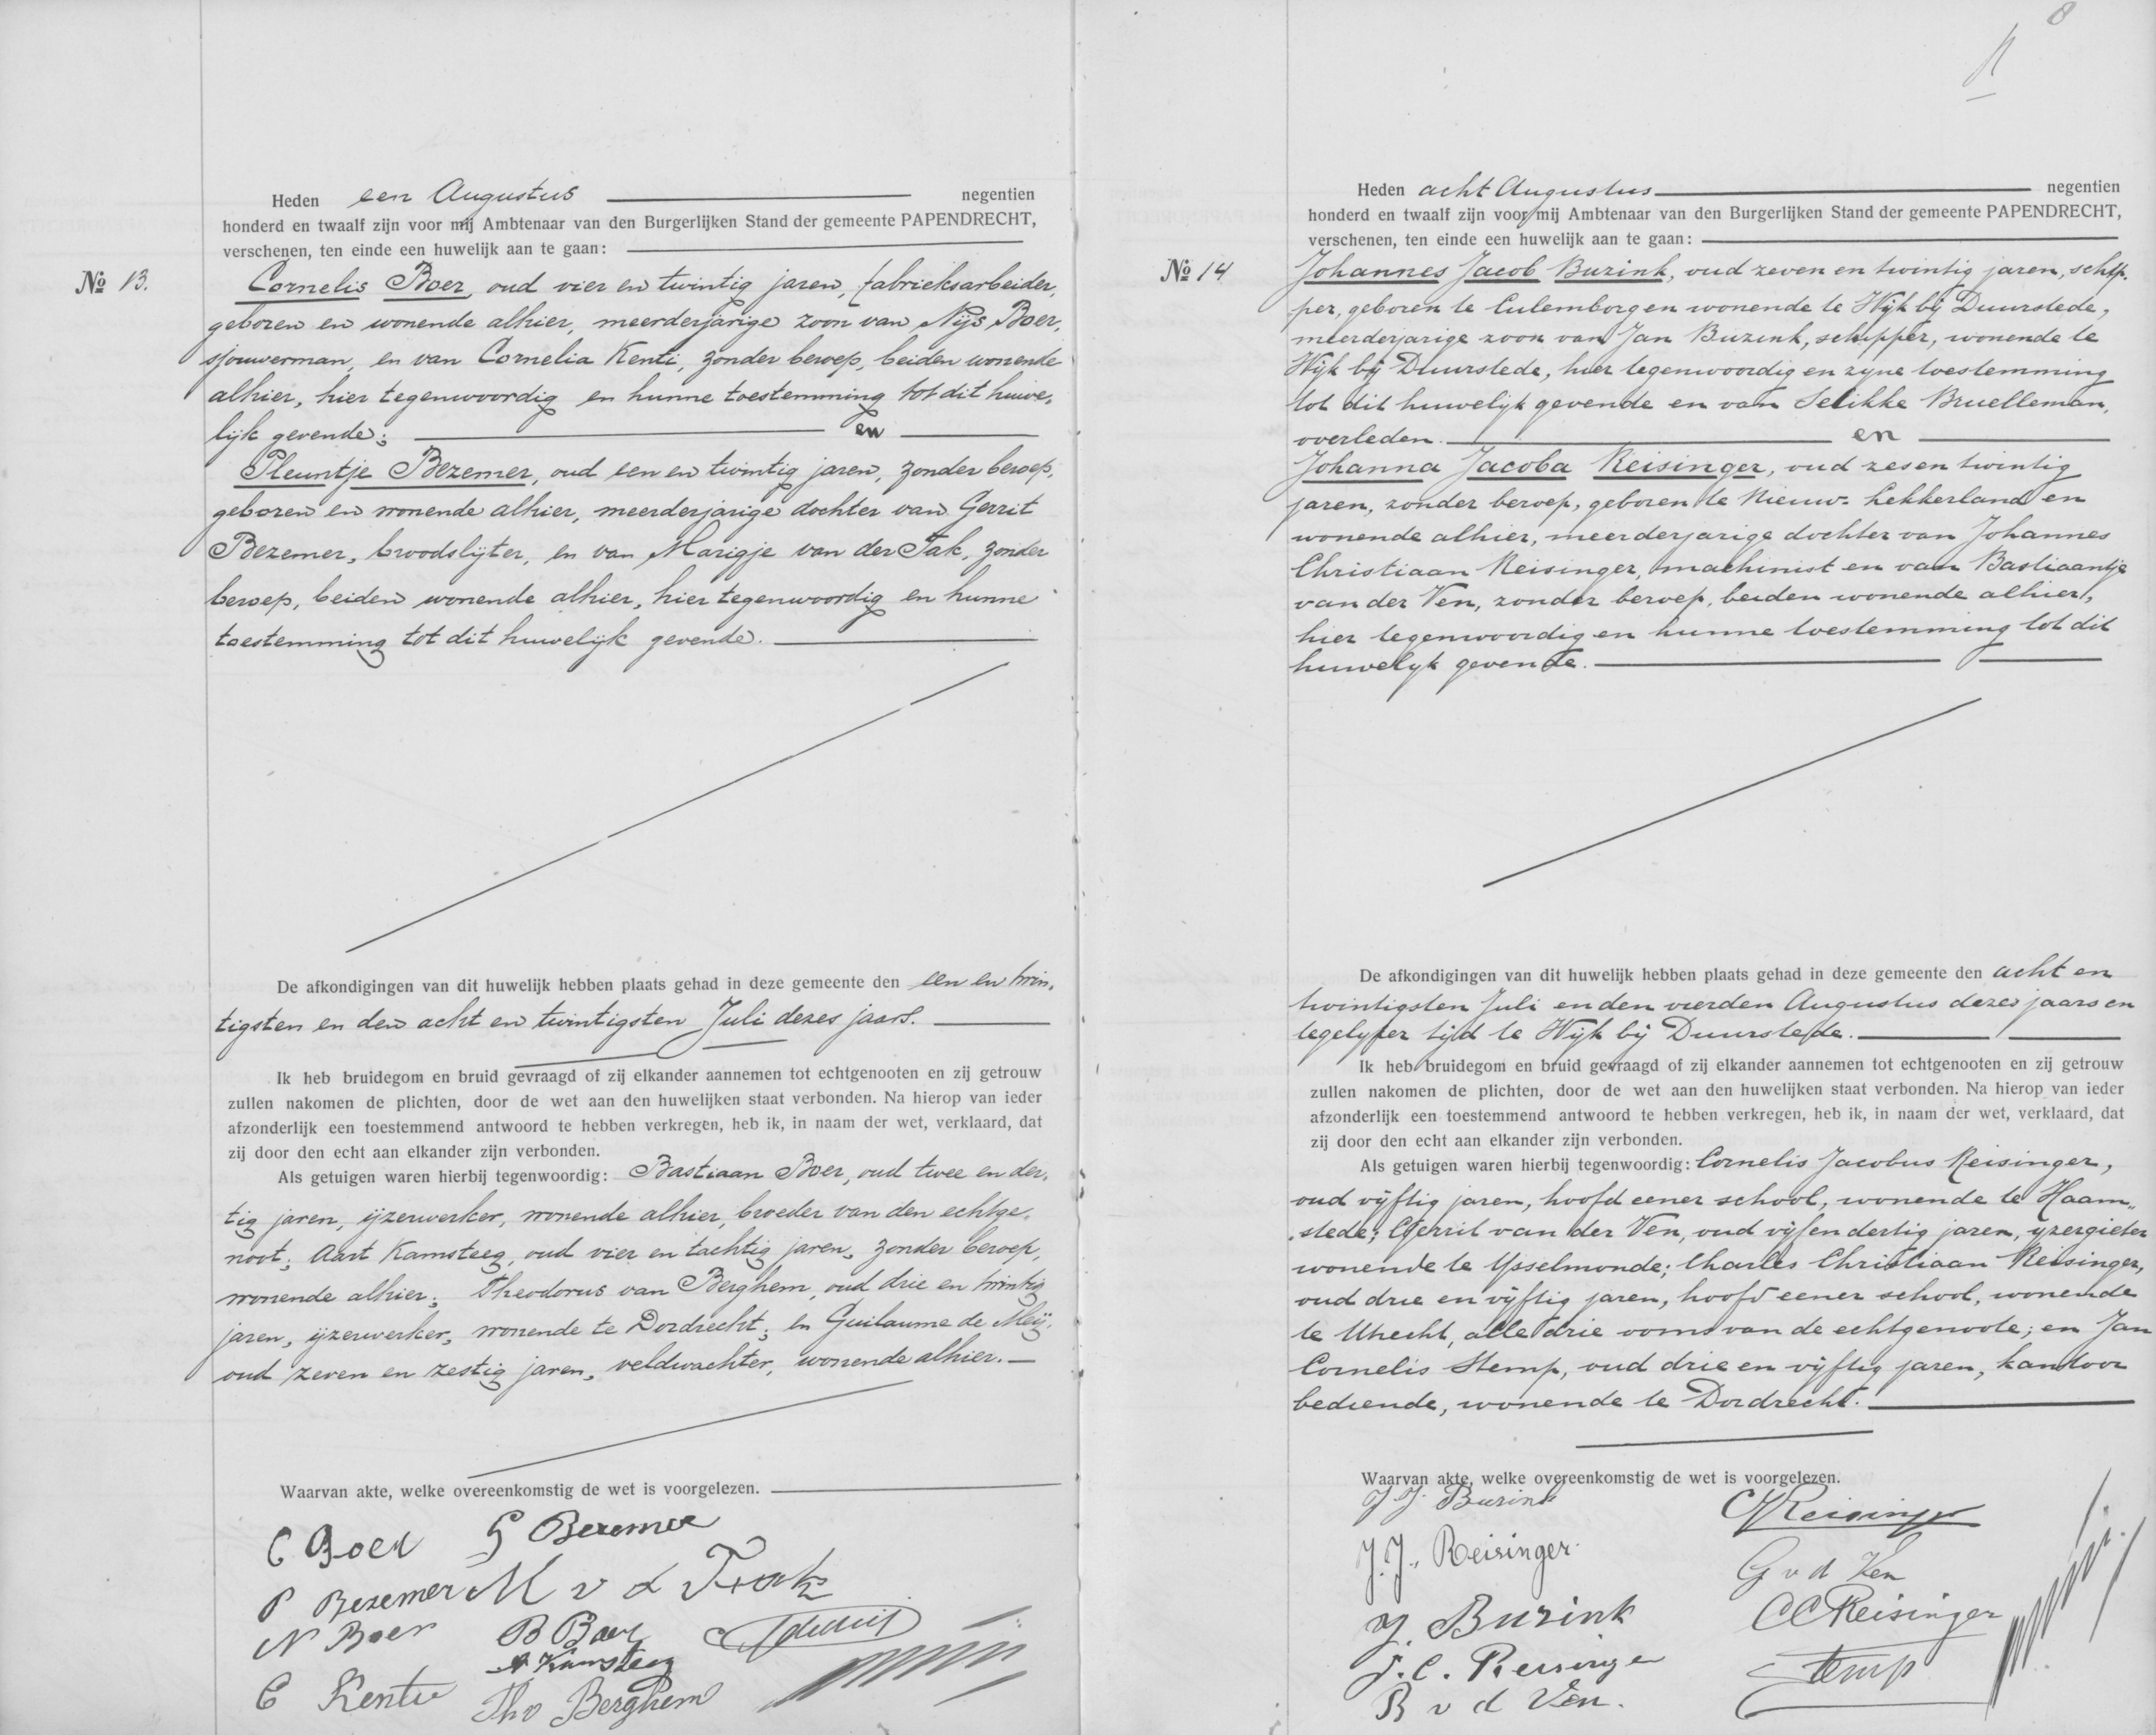 Heden een Augustus negentien
honderd en twaalf zijn voor mij Ambtenaar van den Burgerlijken Stand der gemeente PAPENDRECHT,
verschenen, ten einde een huwelijk aan te gaan:
No 13.
Cornelis Boer, oud vier en twintig jaren, fabrieksarbeider,
geboren en wonende alhier, meerderjarige zoon van Nijs Boer,
sjouwerman, en van Cornelia Kenti, zonder beroep, beiden wonende
alhier, hier tegenwoordig en hunne toestemming tot dit huwe„
lijk gevende; en
Pleuntje Bezemer, oud een en twintig jaren, zonder beroep,
geboren en wonende alhier, meerderjarige dochter van Gerrit
Bezemer, broodslijter, en van Marigje van der Tak, zonder
beroep, beiden wonende alhier, hier tegenwoordig en hunne
toestemming tot dit huwelijk gevende.
De afkondigingen van dit huwelijk hebben plaats gehad in deze gemeente den een en twin„
tigsten en den acht en twintigsten Juli dezes jaars.
Ik heb bruidegom en bruid gevraagd of zij elkander aannemen tot echtgenooten en zij getrouw
zullen nakomen de plichten, door de wet aan den huwelijken staat verbonden. Na hierop van ieder
afzonderlijk een toestemmend antwoord te hebben verkregen, heb ik, in naam der wet, verklaard, dat
zij door den echt aan elkander zijn verbonden.
Als getuigen waren hierbij tegenwoordig: Bastiaan Boer, oud twee en der„
tig jaren, ijzerwerker, wonende alhier, broeder van den echtge„
noot; Aart Kamsteeg, oud vier en tachtig jaren, zonder beroep,
wonende alhier; Theodorus van Berghem, oud drie en twintig
jaren, ijzerwerker, wonende te Dordrecht; en Guilaume de Meij,
oud zeven en zestig jaren, veldwachter, wonende alhier.
Waarvan akte, welke overeenkomstig de wet is voorgelezen.
C Boer G Bezemer
P Bezemer M v d Tak
N Boer B Boer
A Kamsteeg
C Kentie Th v Berghem
8
Heden acht Augustus negentien
honderd en twaalf zijn voor mij Ambtenaar van den Burgerlijken Stand der gemeente PAPENDRECHT,
verschenen, ten einde een huwelijk aan te gaan:
No 14
Johannes Jacob Buzink, oud zeven en twintig jaren, schip„
per, geboren te Culemborg en wonende te Wijk bij Duurstede,
meerderjarige zoon van Jan Buzink, schipper, wonende te
Wijk bij Duurstede, hier tegenwoordig en zijne toestemming
tot dit huwelijk gevende en van Selikke Bruelleman,
overleden. en
Johanna Jacoba Reisinger, oud zes en twintig
jaren, zonder beroep, geboren te Nieuw-Lekkerland en
wonende alhier, meerderjarige dochter van Johannes
Christiaan Reisinger, machinist en van Bastiaantje
van der Ven, zonder beroep, beiden wonende alhier,
hier tegenwoordig en hunne toestemming tot dit
huwelijk gevende.
De afkondigingen van dit huwelijk hebben plaats gehad in deze gemeente den acht en
twintigsten Juli en den vierden Augustus dezes jaars en
tegelijker tijd te Wijk bij Duurstede.
Ik heb bruidegom en bruid gevraagd of zij elkander aannemen tot echtgenooten en zij getrouw
zullen nakomen de plichten, door de wet aan den huwelijken staat verbonden. Na hierop van ieder
afzonderlijk een toestemmend antwoord te hebben verkregen, heb ik, in naam der wet, verklaard, dat
zij door den echt aan elkander zijn verbonden.
Als getuigen waren hierbij tegenwoordig: Cornelis Jacobus Reisinger,
oud vijftig jaren, hoofd eener school, wonende te Haam„
„stede; Gerrit van der Ven, oud vijf en dertig jaren, ijzergieter
wonende te IJsselmonde; Charles Christiaan Reisinger,
oud drie en vijftig jaren, hoofd eener school, wonende
te Utrecht, alle drie ooms van de echtgenoote; en Jan
Cornelis Stemp, oud drie en vijftig jaren, kantoor
bediende, wonende te Dordrecht.
Waarvan akte, welke overeenkomstig de wet is voorgelezen.
J. J. Buzink CJReisinger
J. J. Reisinger G v d Ven
J. Buzink CCReisinger
J. C. Reisinger Stemp
B v d Ven.